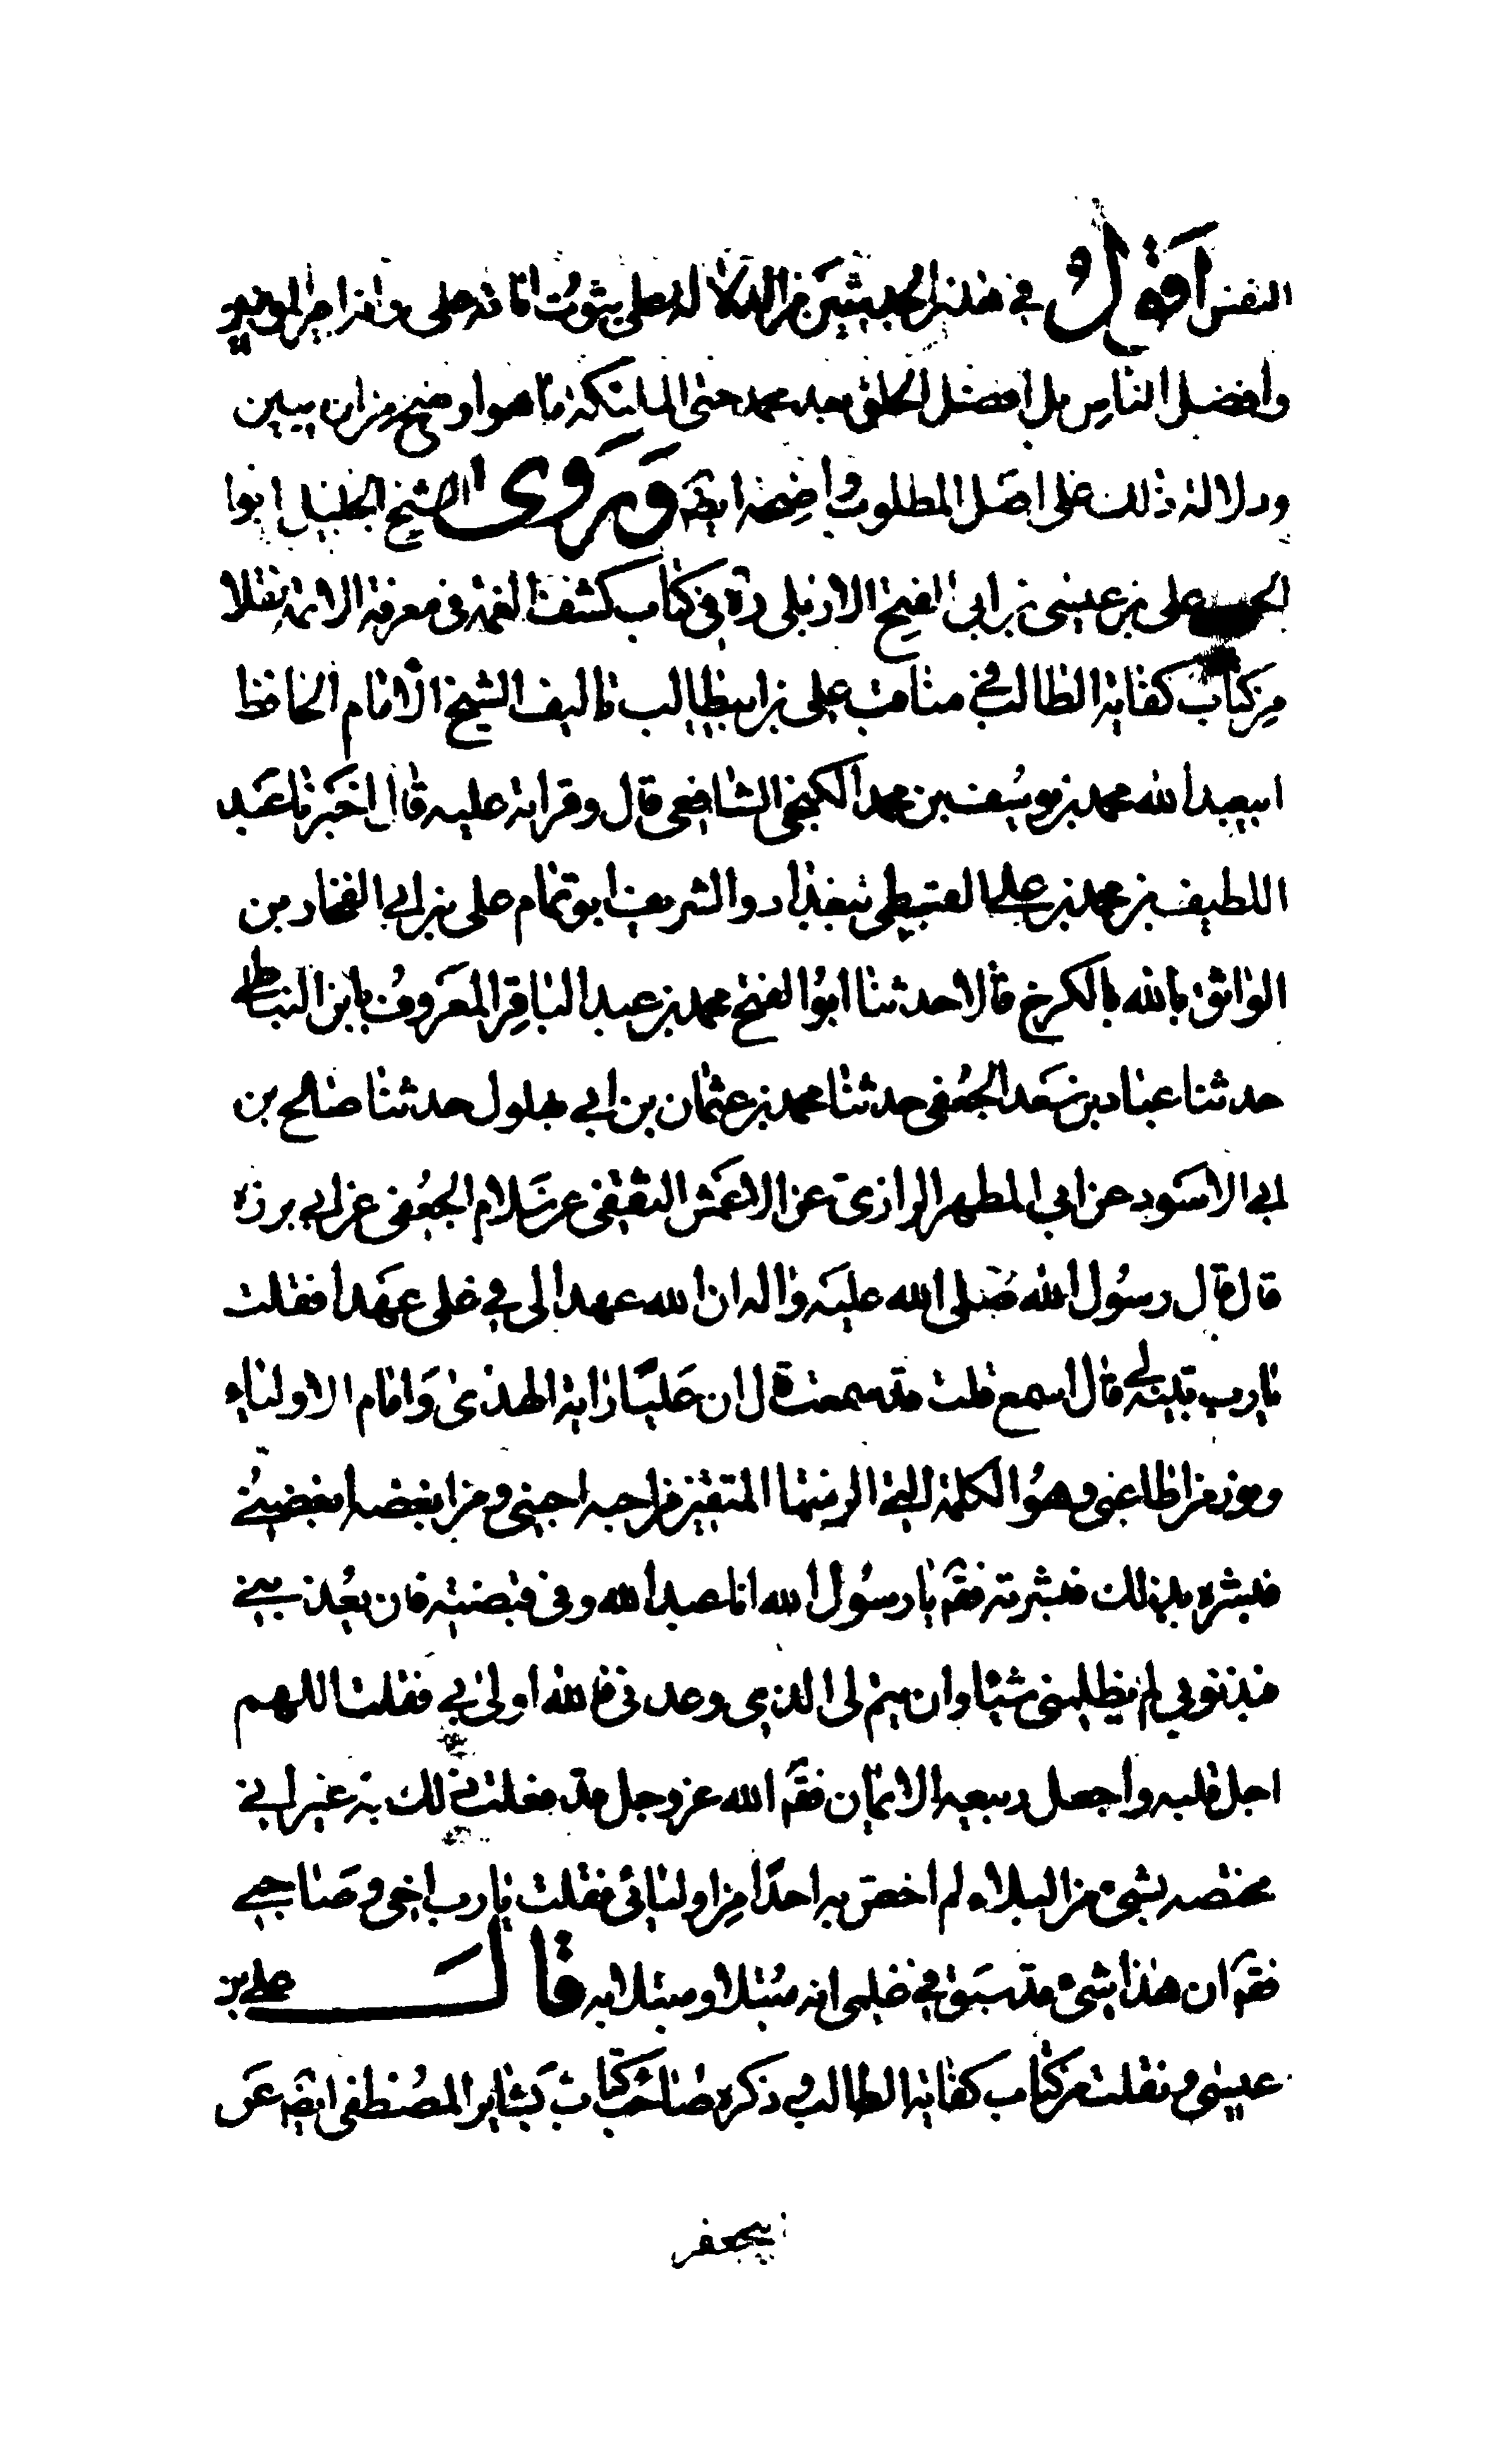 النفس اقول في هذين الحديثين من الدلالة على ثبوت امامة علي وانه امير المؤمنين
وافضل الناس بل افضل الخلق بعد محمد حتى الملئكة ما هو اوضح من ان يبين
ودلالة ذلك على اصل المطلوب واضحة ايضا وروى الشيخ الجليل ابوا
لحسن علي بن عيسى بن ابي الفتح الاربلي ره في كتاب كشف الغمة في معرفة الائمة نقلا
من كتاب كفاية الطالب في مناقب علي بن ابيطالب تاليف الشيخ الامام الحافظ
ابيعبد الله محمد بن يوسف بن محمد الكنجي الشافعي قال وقراته عليه قال اخبرنا عبد
اللطيف بن محمد بن علي القبيطي ببغداد والشريف ابو تمام علي بن ابي الفخار بن
الواثق بالله بالكرخ قالا حدثنا ابو الفتح محمد بن عبد الباقر المعروف بابن البطا
حدثنا عباد بن سعد الجعفي حدثنا محمد بن عثمان بن ابي بهلول حدثنا صالح بن
ابي الاسود عن ابي المطهر الرازي عن الاعمش الثقفي عن سلام الجعفي عن ابي برزه
قال قال رسول الله صلى الله عليه واله ان الله عهد الى في علي عهدا فقلت
يا رب بينه لي قال اسمع قلت قد سمعت قال ان عليا راية الهدى وامام الاولياء
ونور من اطاعني وهو الكلمة التي الزمتها المتقين من احبه احبني ومن ابغضه ابغضني
فبشره بذلك فبشرته فقم يا رسول الله انا عبد الله وفي قبضته فان يعذبني
فبذنوبي لم يظلمني شيئا وان يتم لي الذي وعدني فالله اولى بي فقلت اللهم
اجل قلبه واجعل ربيعه الايمان فقم الله عز وجل قد فعلت ذلك به غير اني
مختصه بشئ من البلاء لم اخص به احدا من اوليائي فقلت يا رب اخي وصاحبي
فقم ان هذا شئ قد سبق في علمي انه مبتلا ومبتلا به قال علي بن
عيسى ونقلت من كتاب كفاية الطالب وذكره صاحب كتاب بشاير المصطفى ايضا عن
بيجعفر